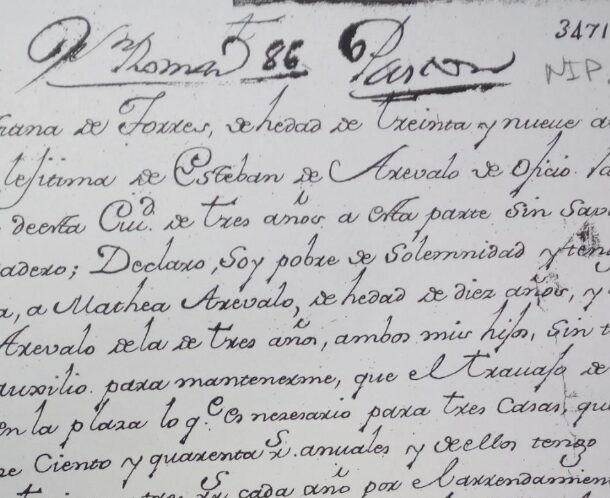 3471
Dn Roman 86 Pascon
NIP
de Torres, de hedad de treinta y nueve a
lexitima de Esteban de Arevalo de oficio
deesta Ciud. de tres años a esta parte sin sav
adero; Declaro, soy pobre de solemnidad y teng
a, a Mathea Arevalo, de hedad de diez años, y
Arevalo de la de tres años, ambos mis hijos, sin
auxilio para mantenerme, que el travajo de
en la plaza lo qe. es nezesario para tres Casas, qu
Ciento y quarenta rs. anuales y de ellos tengo
rs cada año por el arrendamien